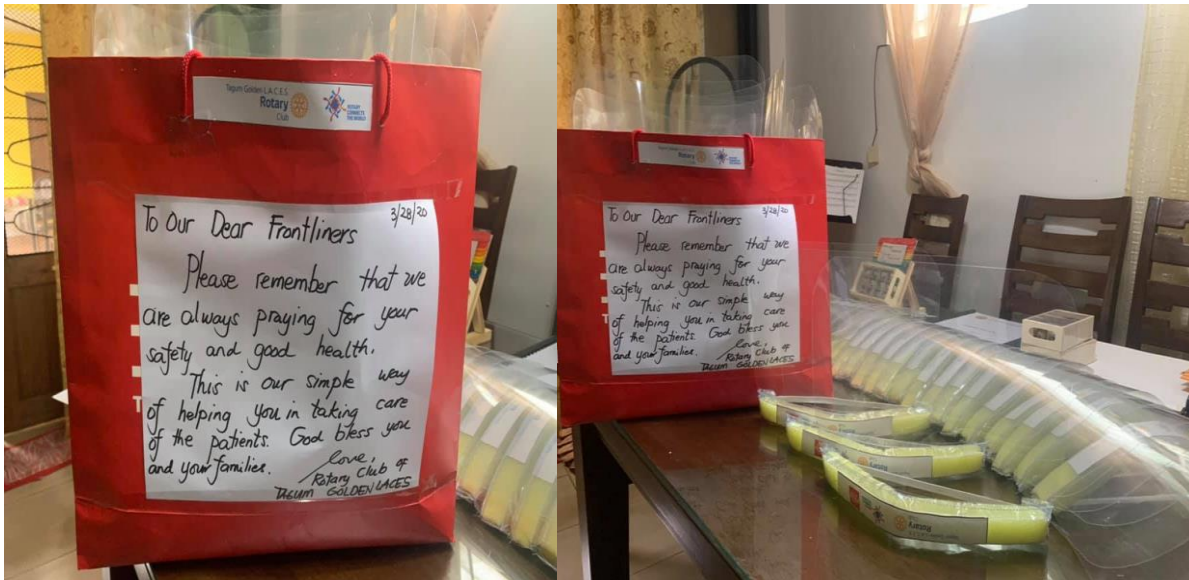 Tagum Golden L.A.C.E.S
Rotary
Club
ROTARY
CONNECTS
THE WORLD
3/28/20
To Our Dear Frontliners
Please remember that we
are always praying for your
safety and good health.
This is our simple way
of helping you in taking care
of the patients. God bless you
and your families.
love,
Rotary Club of
TAGUM GOLDEN LACES
Rotary
3/28/20
To Our Dear Frontliners
Please remember that we
are always praying for your
safety and good health.
This is our simple way
of helping you in taking care
of the patients. God bless you
and your families.
love,
Rotary Club of
TAGUM GOLDEN LACES
Rotary